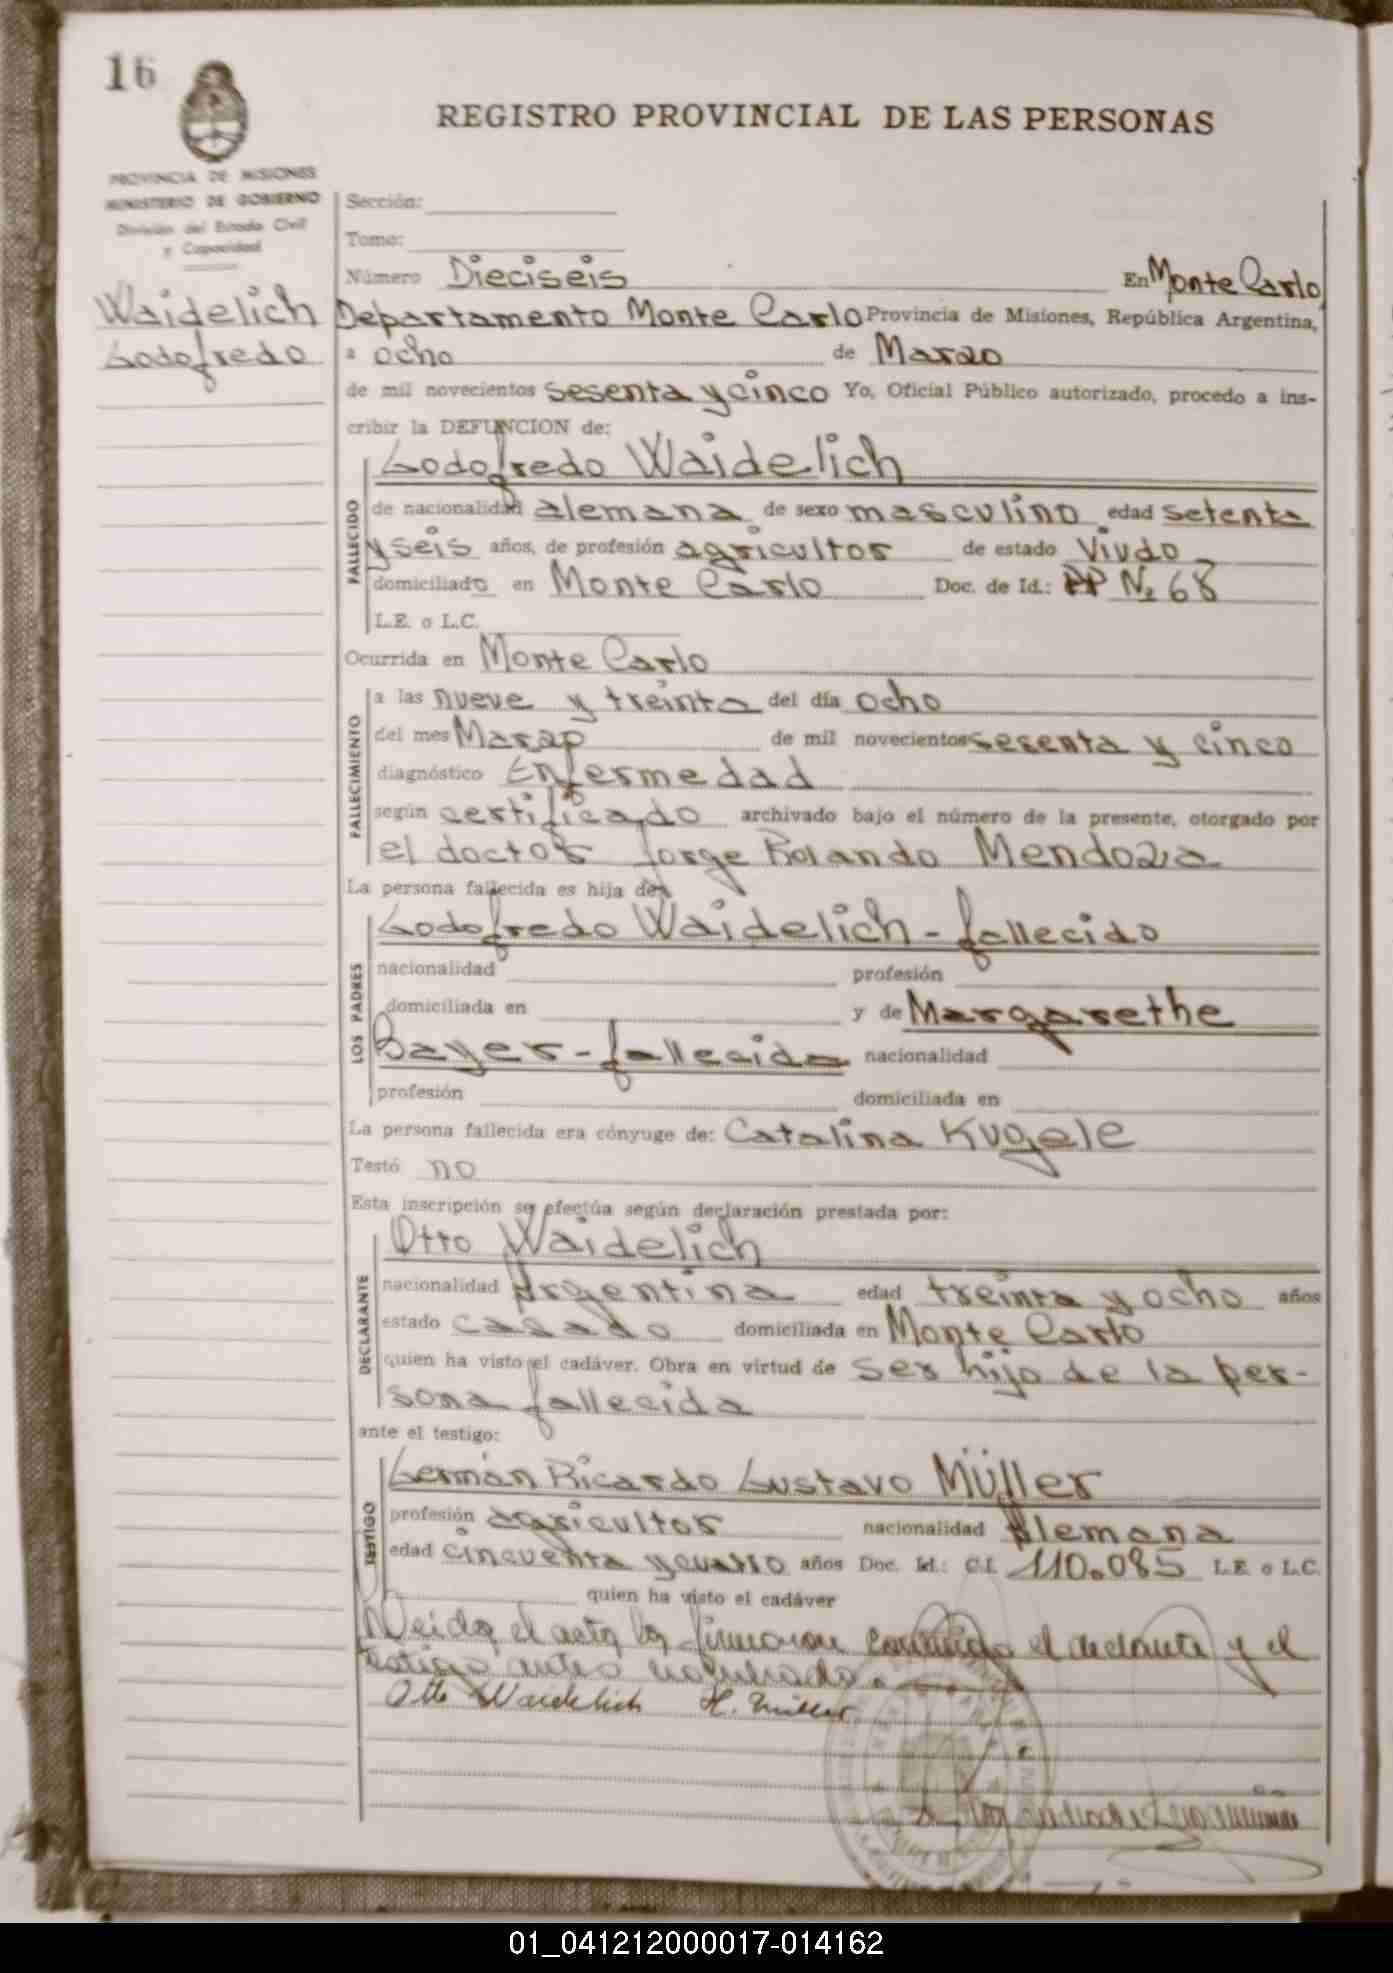 16
REGISTRO PROVINCIAL DE LAS PERSONAS
PROVINCIA DE MISIONES
MINISTERIO DE GOBIERNO
División del Estado Civil
y Capacidad
Waidelich
Godofredo
Sección:
Tomo:
Número Dieciseis En Monte Carlo,
Departamento Monte Carlo Provincia de Misiones, República Argentina,
a ocho de Marzo
de mil novecientos sesenta y cinco Yo, Oficial Público autorizado, procedo a ins-
cribir la DEFUNCION de:
FALLECIDO
Godofredo Waidelich
de nacionalidad alemana de sexo masculino edad setenta
y seis años, de profesión agricultor de estado Viudo
domiciliado en Monte Carlo Doc. de Id.: PP No 68
L.E. o L.C.
Ocurrida en Monte Carlo
FALLECIMIENTO
a las nueve y treinta del día ocho
del mes Marzo de mil novecientos sesenta y cinco
diagnóstico Enfermedad
según certificado archivado bajo el número de la presente, otorgado por
el doctor Jorge Rolando Mendoza
La persona fallecida es hija de:
LOS PADRES
Godofredo Waidelich - fallecido
nacionalidad profesión
domiciliada en y de Margarethe
Bayer - fallecida nacionalidad
profesión domiciliada en
La persona fallecida era cónyuge de: Catalina Kugele
Testó no
Esta inscripción se efectúa según declaración prestada por:
DECLARANTE
Otto Waidelich
nacionalidad Argentina edad treinta y ocho años
estado casado domiciliada en Monte Carlo
quien ha visto el cadáver. Obra en virtud de ser hijo de la per-
sona fallecida
ante el testigo:
TESTIGO
Germán Ricardo Gustavo Müller
profesión agricultor nacionalidad Alemana
edad cincuenta y cuatro años Doc. Id.: C.I. 110.085 L.E. o L.C.
quien ha visto el cadáver
Leida el acta la firmaron conmigo el declarante y el
testigo antes nombrado.
Otto Waidelich H. Müller
01_041212000017-014162